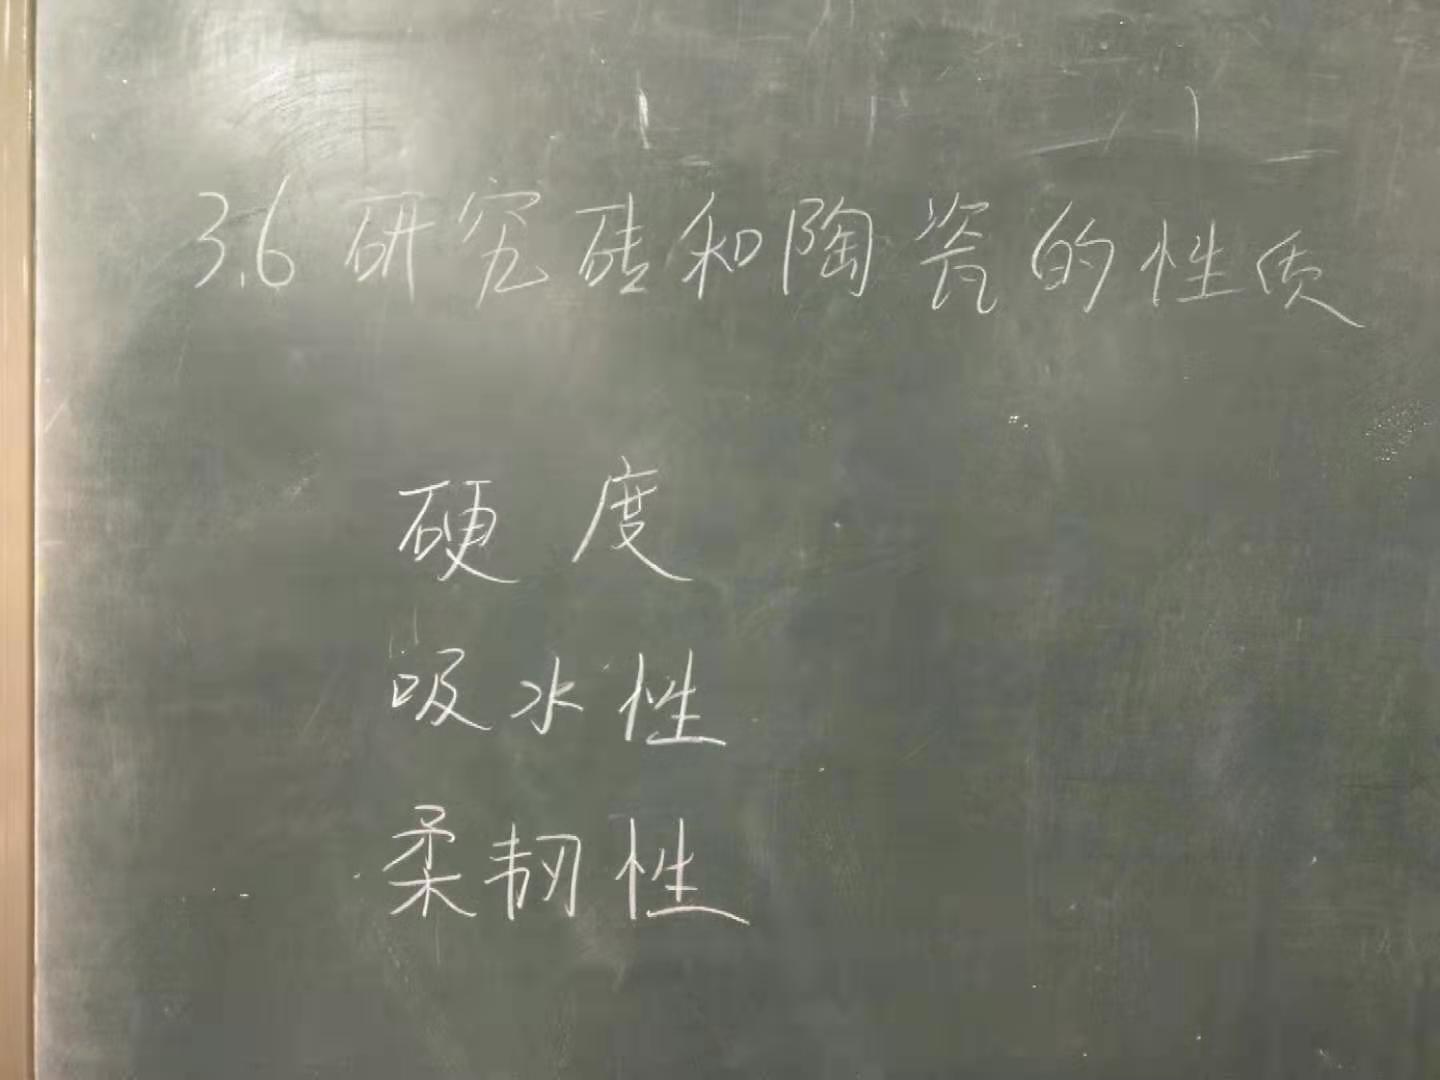 3.6 研究砖和陶瓷的性质
硬度
吸水性
柔韧性